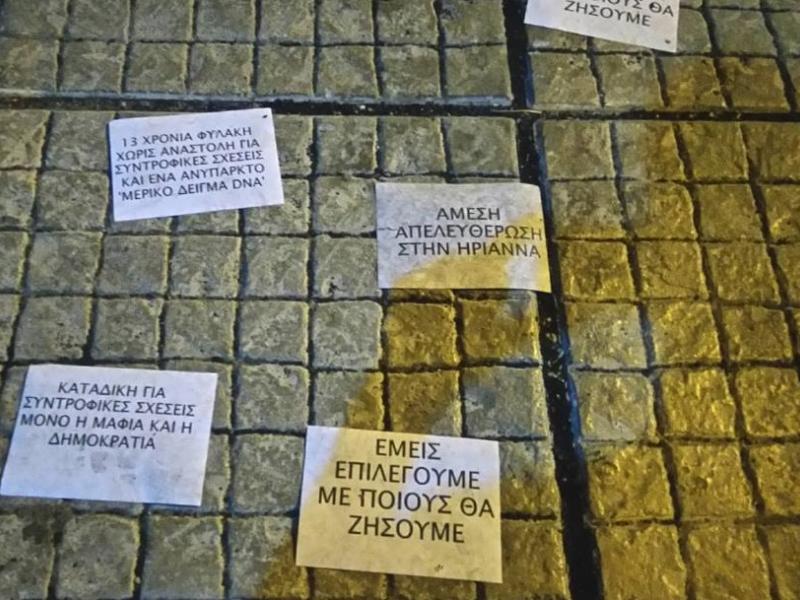 ΠΟΙΟΥΣ ΘΑ
ΖΗΣΟΥΜΕ
13 ΧΡΟΝΙΑ ΦΥΛΑΚΗ
ΧΩΡΙΣ ΑΝΑΣΤΟΛΗ ΓΙΑ
ΣΥΝΤΡΟΦΙΚΕΣ ΣΧΕΣΕΙΣ
ΚΑΙ ΕΝΑ ΑΝΥΠΑΡΚΤΟ
'ΜΕΡΙΚΟ ΔΕΙΓΜΑ DNA'
ΑΜΕΣΗ
ΑΠΕΛΕΥΘΕΡΩΣΗ
ΣΤΗΝ ΗΡΙΑΝΝΑ
ΚΑΤΑΔΙΚΗ ΓΙΑ
ΣΥΝΤΡΟΦΙΚΕΣ ΣΧΕΣΕΙΣ
ΜΟΝΟ Η ΜΑΦΙΑ ΚΑΙ Η
ΔΗΜΟΚΡΑΤΙΑ
ΕΜΕΙΣ
ΕΠΙΛΕΓΟΥΜΕ
ΜΕ ΠΟΙΟΥΣ ΘΑ
ΖΗΣΟΥΜΕ